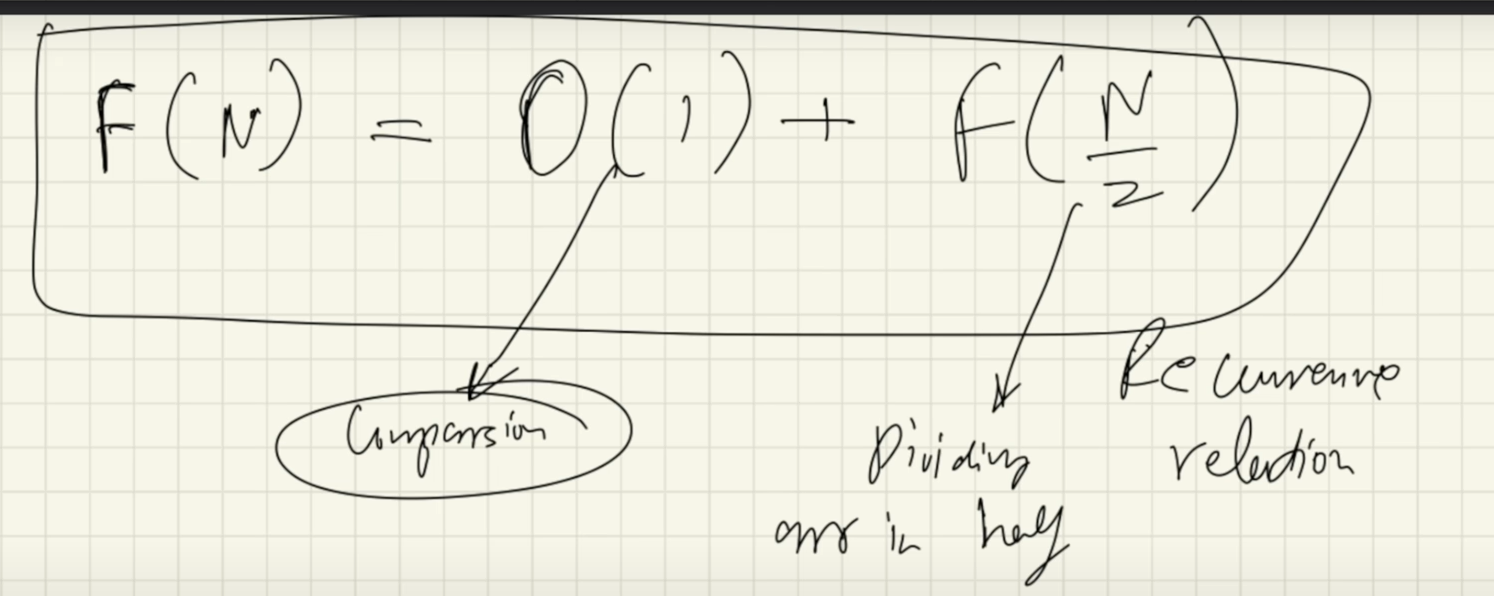 F(N) = O(1) + F(N/2)
Comparsion
Dividing
arr in half
Recurrence
relation